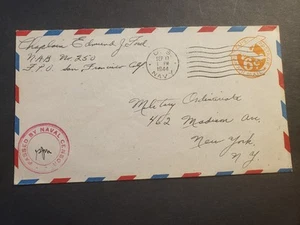 Chaplain Edmund J.
NAB No 250
F.P.O. San Francisco Cal
U.S.
NAVY
1944
6¢
Military Ordinariate
462 Madison Ave.
New York
N.Y.
PASSED BY NAVAL CENSOR